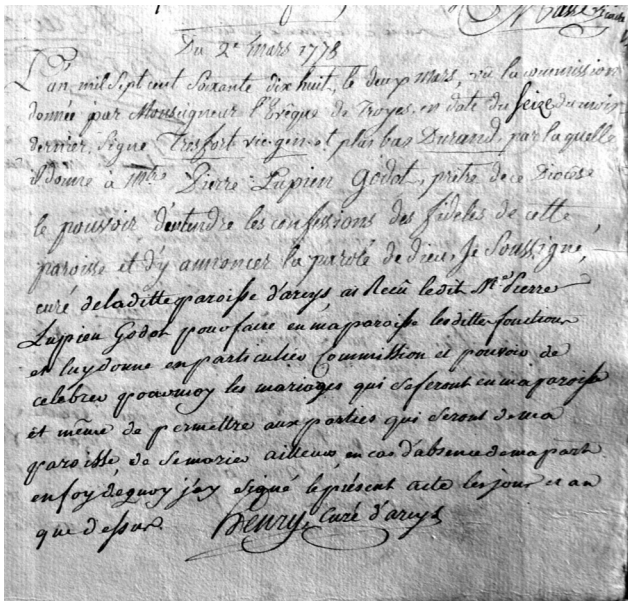 Du 2e mars 1778
L'an mil sept cent soixante dix huit, le deux mars, vu la commission
donnée par Monseigneur l'Evêque de Troyes, en date du seize du mois
dernier, signé Tresfort vic. gen. et plus bas Durand, par laquelle
il donne à Mtre Pierre Lupien Godot, prêtre de ce Diocèse
le pouvoir d'entendre les confessions des fideles de cette
paroisse et d'y annoncer la parole de dieu, Je Soussigné,
curé de laditte paroisse d'arcys, ai Recü ledit Mre Pierre
Lupien Godot pour faire en ma paroisse lesdittes fonctions
et luy donne en particulier Commission et pouvoir de
celebrer pour moy les mariages qui se feront en ma paroisse
et même de permettre aux parties qui seront de ma
paroisse, de se marier ailleurs en cas d'absence de ma part.
en foy de quoy j'ay signé le présent acte les jour et an
que dessus. Henry, Curé d'arcys